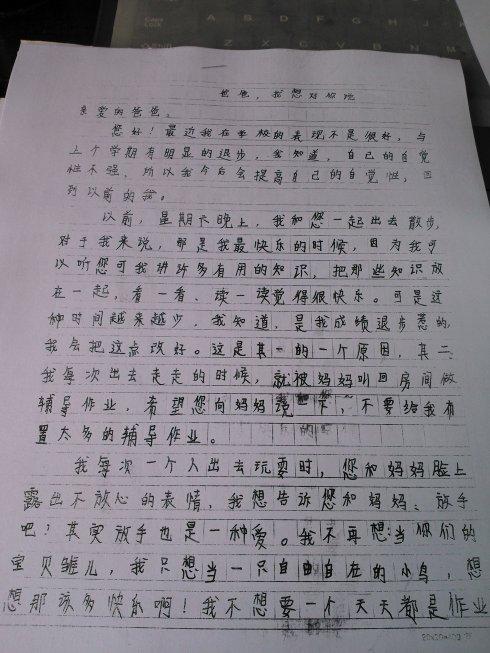 Caps Lock
A S D F G H J K
Z X C V B N M
爸爸，我想对你说
亲爱的爸爸：
您好！最近我在学校的表现不是很好，与
上个学期有明显的退步，我知道，自己的自觉
性不强，所以我今后会提高自己的自觉性，回
到以前的我。
以前，星期六晚上，我和您一起出去散步，
对于我来说，那是我最快乐的时候，因为我可
以听您可我讲许多有用的知识，把那些知识放
在一起，看一看、读一读觉得很快乐。可是这
种时间越来越少，我知道，是我成绩退步惹的，
我会把这点改好。这是其一的一个原因，其二
我每次出去走走的时候，就被妈妈叫回房间做
辅导作业，希望您向妈妈说一下，不要给我布
置太多的辅导作业。
我每次一个人出去玩耍时，您和妈妈脸上
露出不放心的表情，我想告诉您和妈妈：放手
吧！其实放手也是一种爱。我不再想当你们的
宝贝雏儿，我只想当一只自由自在的小鸟，想
想那该多快乐啊！我不想要一个天天都是作业